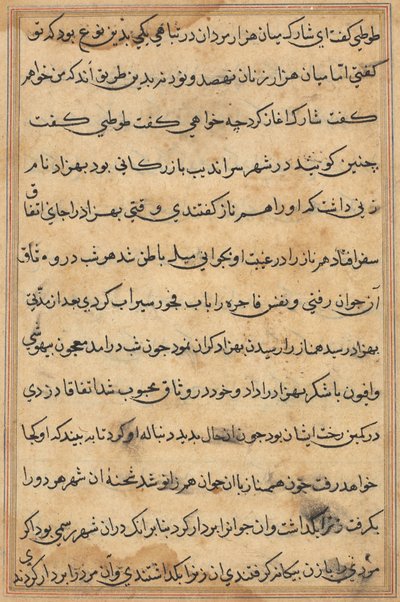 طوطی گفت ای شارک میان هزار مردان در تباهی یکی بدین نوع بود که تو
گفتی اما میان هزار زنان نهصد و نود نه بدین طریق اند که من خواهم
گفت شارک اغاز کرد چه خواهی گفت طوطی گفت
چنین کویند در شهر سراندیب بازرکانی بود بهزاد نام
زنی داشت که او را همناز کفتندی وقتی بهزاد را جای اتفاق
سفر افتاد همناز را در غیبت او بجوانی میل باطن شد هر شب در وثاق
آن جوان رفتی و نفس فاجره را باب فجور سیراب کردی بعد از مدتی
بهزاد رسید همناز را رسیدن بهزاد کران نمود چون شب درامد معجون بیهوشی
وافیون با شکر بهزاد را داد و خود در وثاق محبوب شد اتفاقا دزدی
در کمین رخت ایشان بود چون ان حال بدید دنباله او کرد تا به بیند که او کجا
خواهد رفت چون همناز با ان جوان همزانو شد شحنه ان شهر هر دو را
بکرفت زن را بکداشت وان جوان را بردار کرد بنابر انک در ان شهر رسمی بود اکر
مردی را با زن بیکانه کرفتندی ان زن را بکداشتندی وآن مرد را بردار کردندی